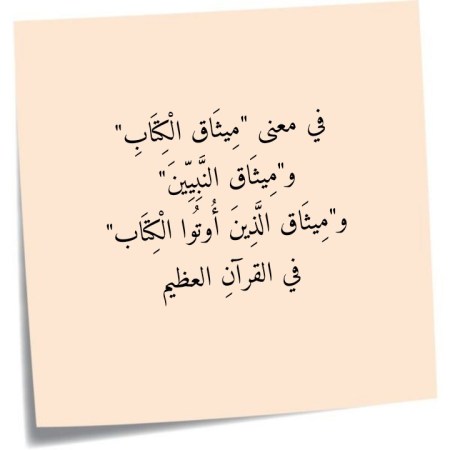 في معنى "مِيثَاق الْكِتَابِ"
و"مِيثَاق النَّبِيِّينَ"
و"مِيثَاق الَّذِينَ أُوتُوا الْكِتَاب"
في القرآنِ العظيم